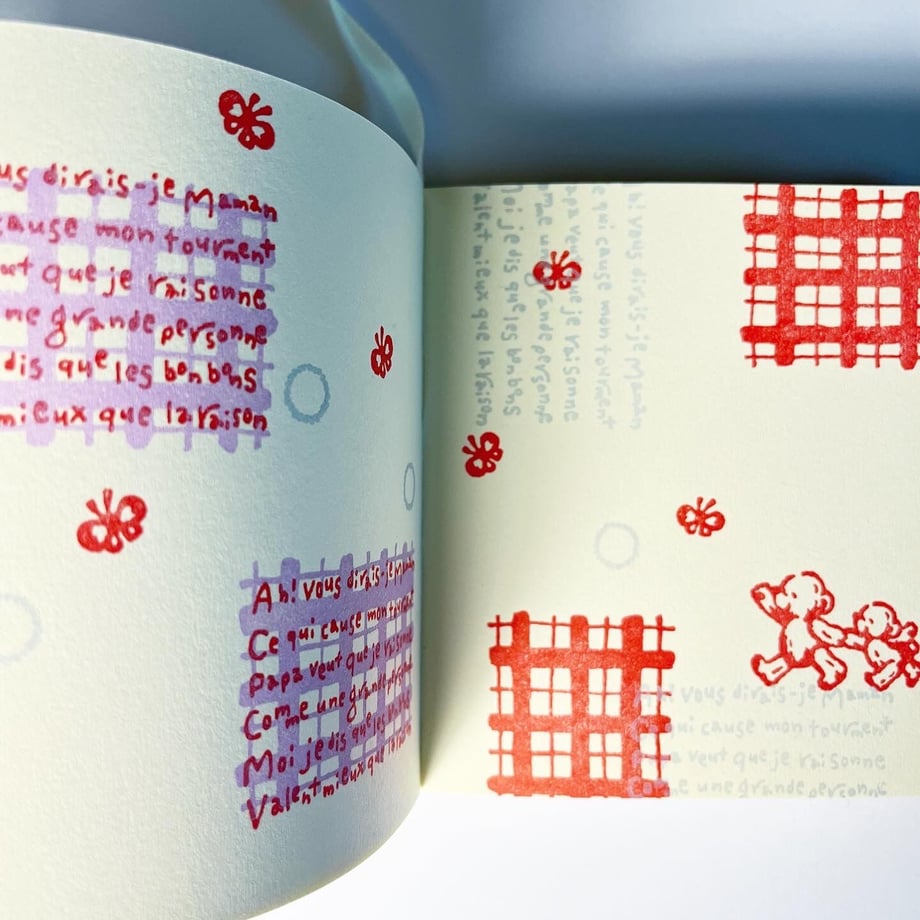 us dirais-je Maman
cause mon tourment
ut que je raisonne
ne grande personne
dis que les bonbons
mieux que la raison
Ah! vous dirais-je Maman
Ce qui cause mon tourment
Papa veut que je raisonne
Come une grande personne
Moi je dis que les bonbons
Valent mieux que la raison
i vous dirais-je Maman
e qui cause mon tourment
apa veut que je raisonne
ome une grande personne
Moi je dis que les bonbons
alent mieux que la raison
Ah! vous dirais-je Maman
qui cause mon tourment
pa veut que je raisonne
Come une grande personne